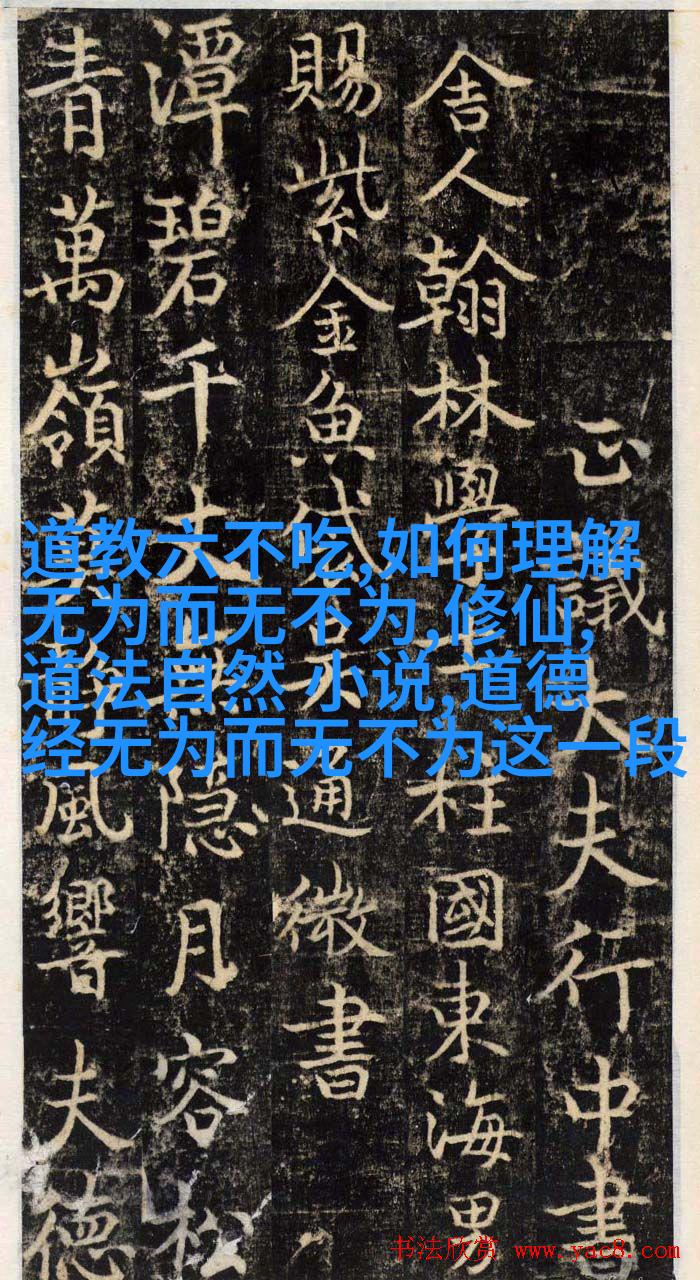 正議大夫行中書
舍人翰林學士柱國東海男
賜紫金魚袋吳通微書
潭碧千丈隱月容松
青萬嶺風響夫德
道教六不吃,如何理解
无为而无不为,修仙,
道法自然 小说,道德
经无为而无不为这一段
书法欣赏 www.yac8.com